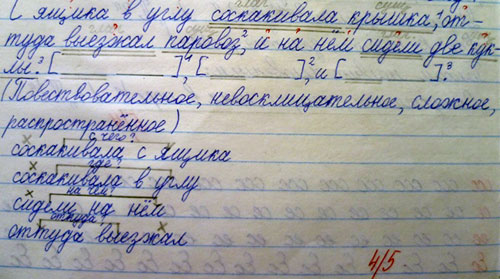 С ящика в углу соскакивала крышка,¹ от-
туда выезжал паровоз,² и на нём сидели две кук-
лы.³ [ ]¹, [ ]², и [ ]³.
(Повествовательное, невосклицательное, сложное,
распространённое)
с чего?
соскакивала с ящика
где
соскакивала в углу
на чём
сидели на нём
откуда
оттуда выезжал
4/5